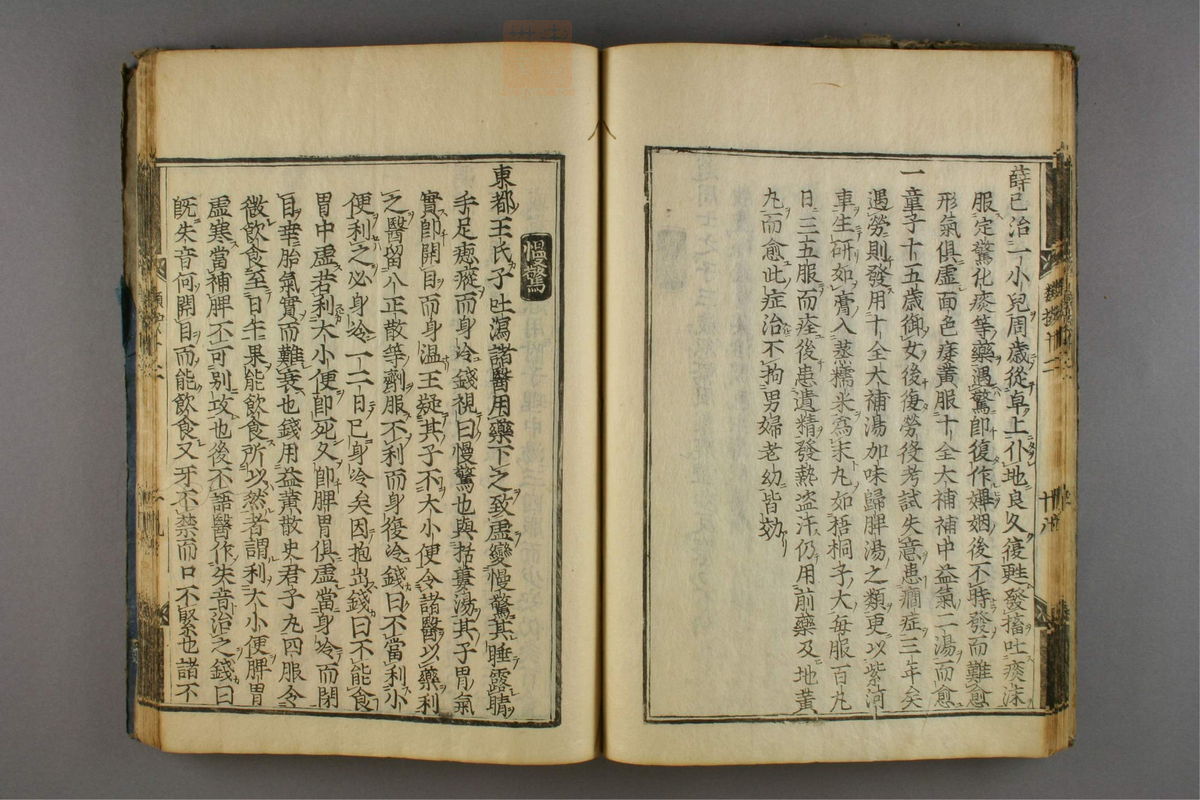 薛己治一小兒周歲從卓上仆地良久復甦發搐吐痰沫
服定驚化痰等藥遇驚卽復作婣姻後不時發而難愈
形氣俱虛面色痿黃服十全大補補中益氣二湯而愈
一童子十五歲御女後復勞役考試失意患癎症三年矣
遇勞則發用十全大補湯加味歸脾湯之類更以紫河
車生研如膏入蒸糯米爲末丸如梧桐子大每服百丸
日三五服而痊後患遺精發熱盗汗仍用前藥及地黃
丸而愈此症治不拘男婦老幼皆効
慢驚
東都王氏子吐瀉諸醫用藥下之致虛變慢驚其睡露睛
手足瘛瘲而身冷錢視曰慢驚也與括蔞湯其子胃氣
實卽開目而身温王疑其子不大小便令諸醫以藥利
之醫留八正散等劑服不利而身復冷錢曰不當利小
便利之必身冷一二日已身冷矣因抱出錢曰不能食
胃中虛若利大小便卽死久卽脾胃俱虛當身冷而閉
目幸胎氣實而難衰也錢用益黃散史君子丸四服令
微飮食至日午果能飮食所以然者謂利大小便脾胃
虛寒當補脾不可别攻也後不語醫作失音治之錢曰
旣失音何開目而能飮食又牙不禁而口不緊也諸不